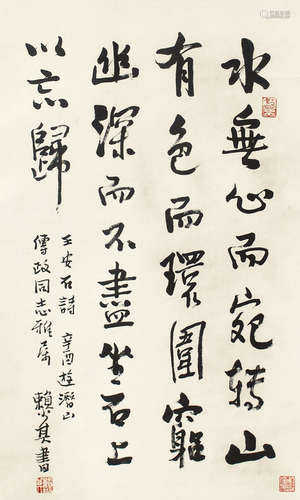 水無心而宛轉山
有色而環圍窮
幽深而不盡坐石上
以忘歸
王安石詩 辛酉遊潛山
傅政同志雅属
賴少其書